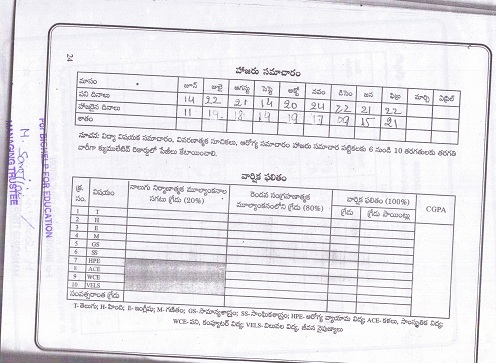 24
హాజరు సమాచారం
మాసం జూన్ జులై ఆగస్టు సెప్టె అక్టో నవం డిసెం జన ఫిబ్ర మార్చి ఏప్రిల్
పని దినాలు 14 22 21 14 20 24 22 21 22
హాజరైన దినాలు 11 18 19 19 17 09 15 21
శాతం
సూచన: విద్యా విషయక సమాచారం, వివరణాత్మక సూచికలు, ఆరోగ్య సమాచారం హాజరు సమాచార పట్టికలకు 6 నుండి 10 తరగతులకు తరగతి
వారీగా క్యుములేటివ్ రికార్డులో పేజీలు కేటాయించాలి.
వార్షిక ఫలితం
క్ర. సం. విషయం నాలుగు నిర్మాణాత్మక మూల్యాంకనాల సగటు గ్రేడు (20%) రెండవ సంగ్రహణాత్మక మూల్యాంకనంలోని గ్రేడు (80%) వార్షిక ఫలితం (100%) CGPA
గ్రేడు గ్రేడు పాయింట్లు
1 T
2 H
3 E
4 M
5 GS
6 SS
7 HPE
8 ACE
9 WCE
10 VELS
సంవత్సరాంత గ్రేడు
T- తెలుగు; H-హింది; E- ఇంగ్లీషు; M- గణితం; GS- సామాన్యశాస్త్రం; SS- సాంఘికశాస్త్రం; HPE- ఆరోగ్య వ్యాయామ విద్య; ACE- కళలు, సాంస్కృతిక విద్య;
WCE- పని, కంప్యూటర్ విద్య; VELS- విలువల విద్య, జీవన నైపుణ్యాలు
For BIGHELP FOR EDUCATION
MANAGING TRUSTEE